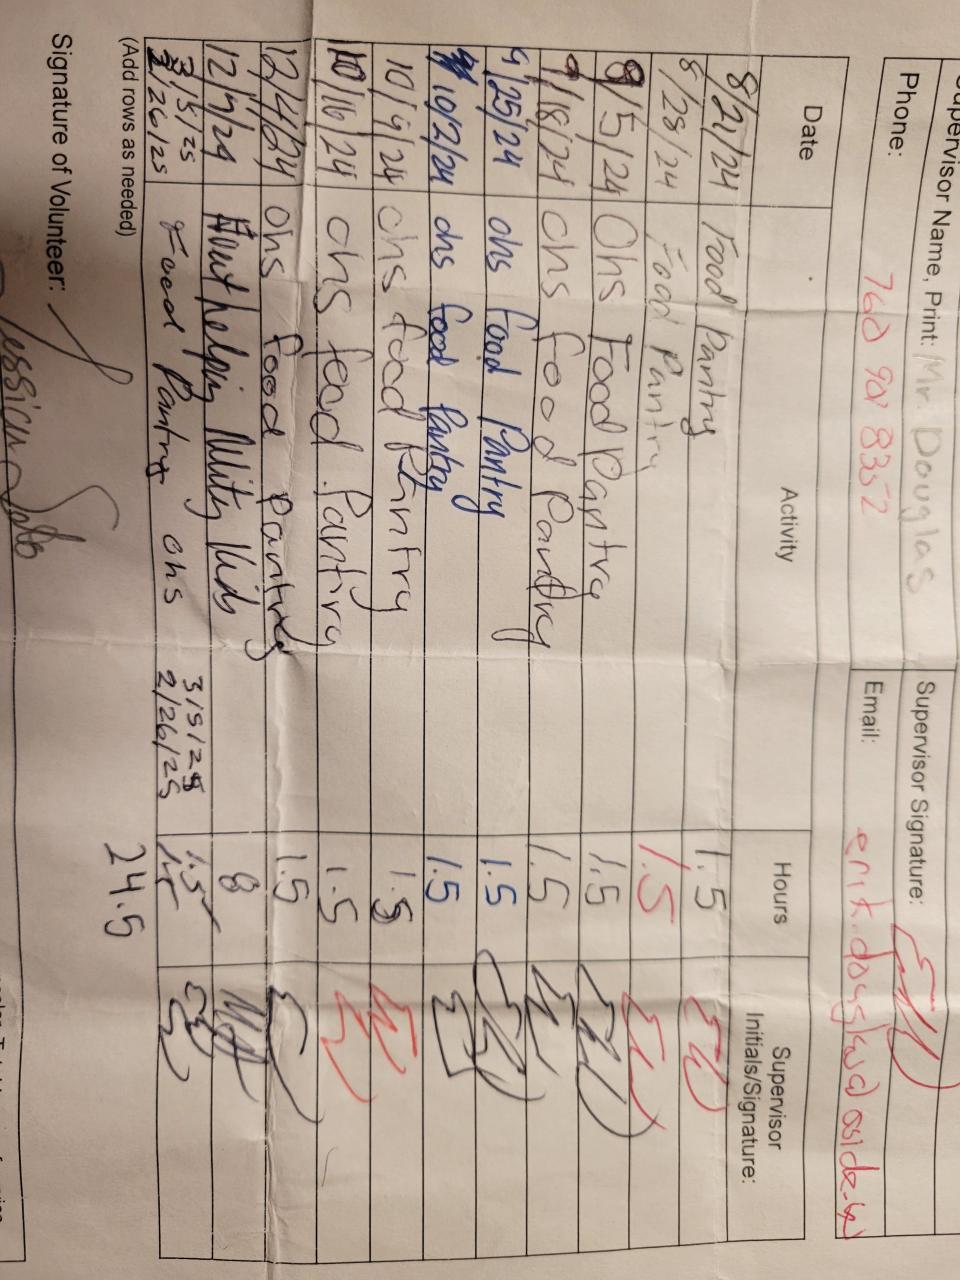 Supervisor Name, Print: Mr. Douglas Supervisor Signature:
Phone: 760 901 8352 Email:
Date Activity Hours Supervisor Initials/Signature:
8/21/24 Food Pantry 1.5
8/28/24 Food Pantry 1.5
9/5/24 Ohs Food Pantry 1.5
9/18/24 ohs food Pantry 1.5
9/25/24 ohs food Pantry 1.5
10/2/24 ohs food Pantry 1.5
10/9/24 ohs food Pantry 1.5
10/16/24 ohs food Pantry 1.5
12/4/24 ohs food Pantry 1.5
12/7/24 helpin Kids 8
3/5/25 3/5/25 1.5
2/26/25 Food Pantry ohs 2/26/25 1.5
(Add rows as needed) 24.5
Signature of Volunteer: